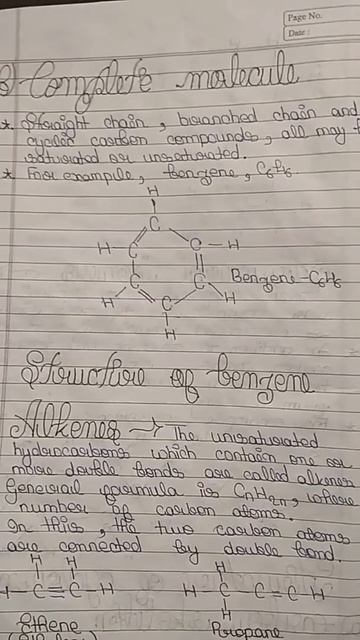 Page No.
Date :
Complete molecule
* Straight chain, branched chain and
cyclic carbon compounds, all may
saturated or unsaturated.
* For example, benzene, C6H6.
H
C
H - C C - H
C C Benzene - C6H6
H C H
H
Structure of benzene
Alkenes → The unsaturated
hydrocarbons which contain one or
more double bonds are called alkenes
General formula is CnH2n, where
number of carbon atoms.
In this, the two carbon atoms
are connected by double bond.
H H H
- C = C - H H - C - C = C H
H
Ethene Propane